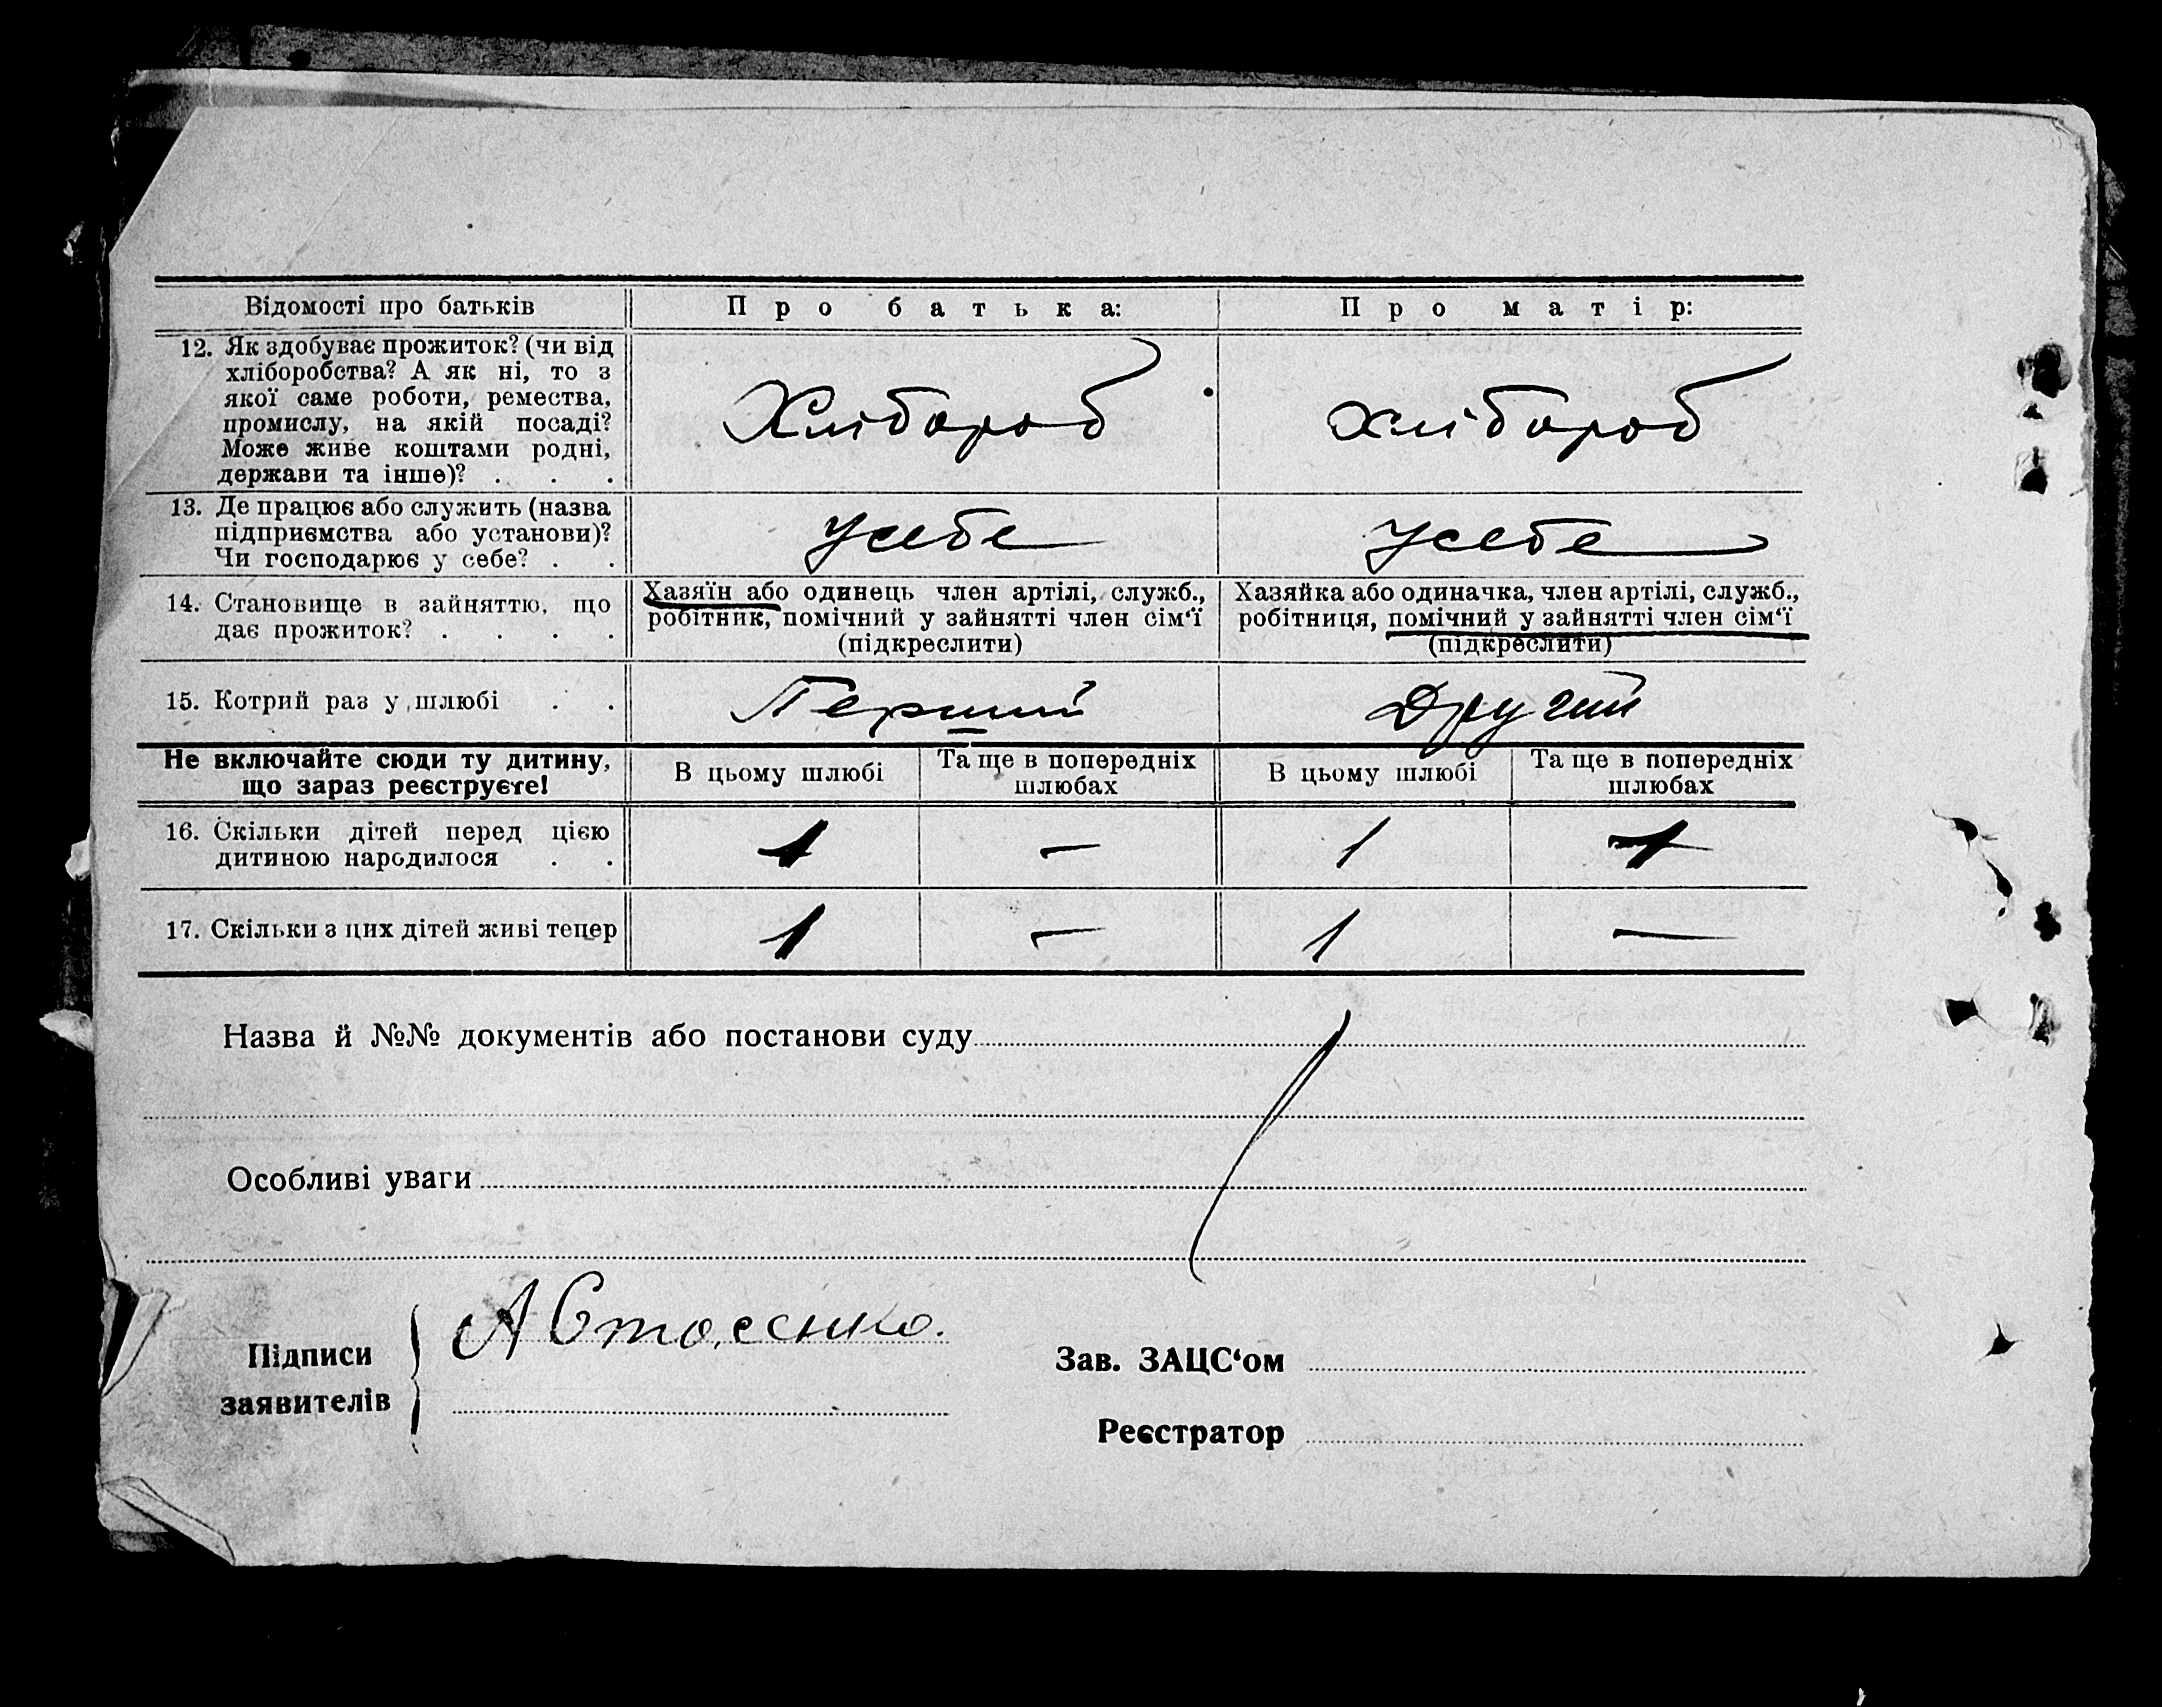 Відомості про батьків Про батька: Про матір:
12. Як здобуває прожиток? (чи від
хліборобства? А як ні, то з
якої саме роботи, ремества,
промислу, на якій посаді?
Може живе коштами родні,
держави та інше)? . . .
Хлібороб хлібороб
13. Де працює або служить (назва
підприємства або установи)?
Чи господарює у себе? . .
у себе у себе
14. Становище в зайняттю, що
дає прожиток? . . . .
Хазяїн або одинець член артілі, служб.,
робітник, помічний у зайнятті член сім‘ї
(підкреслити)
Хазяйка або одиначка, член артілі, служб.,
робітниця, помічний у зайнятті член сім‘ї
(підкреслити)
15. Котрий раз у шлюбі . . Перший Другий
Не включайте сюди ту дитину,
що зараз реєструєте!
В цьому шлюбі
Та ще в попередніх
шлюбах
В цьому шлюбі
Та ще в попередніх
шлюбах
16. Скільки дітей перед цією
дитиною народилося . .
1 — 1
17. Скільки з цих дітей живі тепер 1 — 1 —
Назва й №№ документів або постанови суду
Особливі уваги
Підписи
заявителів
Зав. ЗАЦС‘ом
Реєстратор